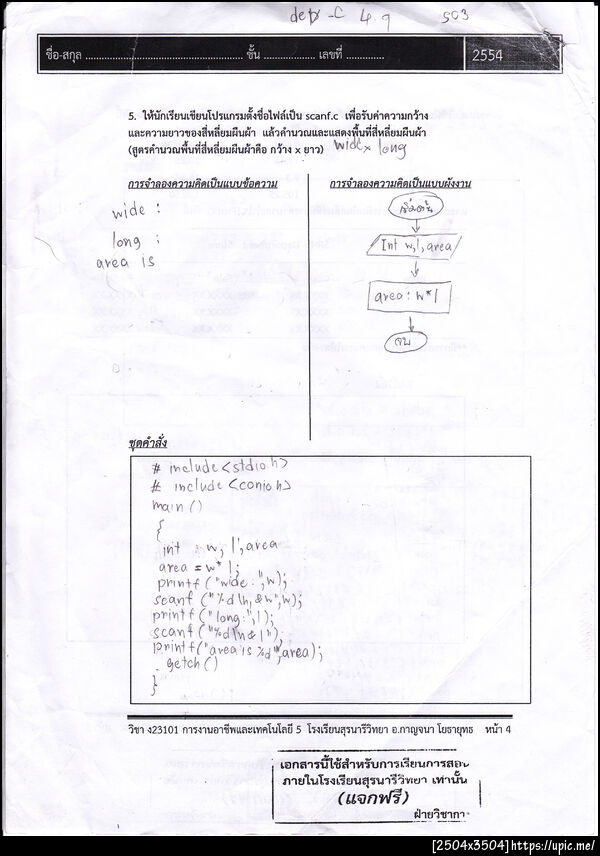 dev-C 4.9 503
ชื่อ-สกุล ................................................ ชั้น ................ เลขที่ ............. 2554
5. ให้นักเรียนเขียนโปรแกรมตั้งชื่อไฟล์เป็น scanf.c เพื่อรับค่าความกว้าง
และความยาวของสี่เหลี่ยมผืนผ้า แล้วคำนวณและแสดงพื้นที่สี่เหลี่ยมผืนผ้า
(สูตรคำนวณพื้นที่สี่เหลี่ยมผืนผ้าคือ กว้าง x ยาว) wide x long
การจำลองความคิดเป็นแบบข้อความ
wide :
long :
area is
การจำลองความคิดเป็นแบบผังงาน
เริ่มต้น
Int w,l,area
area : w*l
จบ
ชุดคำสั่ง
# include <stdio h>
# include <conio h>
main ()
{
{
int : w, l, area
area = w* l;
printf ("wide :", w);
scanf ("%d\n, &w", w);
printf (" long:", l);
scanf ("%d\n& l");
printf("area is %d", area);
getch ()
}
}
วิชา ง23101 การงานอาชีพและเทคโนโลยี 5 โรงเรียนสุรนารีวิทยา อ.กาญจนา โยธายุทธ หน้า 4
เอกสารนี้ใช้สำหรับการเรียนการสอน
ภายในโรงเรียนสุรนารีวิทยา เท่านั้น
(แจกฟรี)
ฝ่ายวิชากา
[2504x3504]https://upic.me/